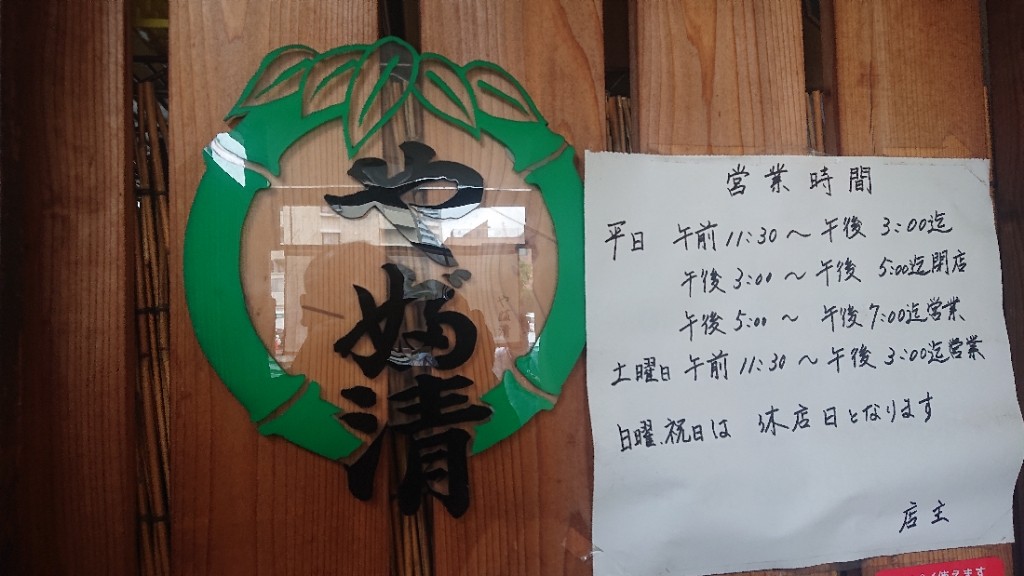 やぶ清
営業時間
平日 午前 11:30 ～ 午後 3:00迄
午後 3:00 ～ 午後 5:00迄閉店
午後 5:00 ～ 午後 7:00迄営業
土曜日 午前 11:30 ～ 午後 3:00迄営業
日曜.祝日は 休店日となります
店主
使えます